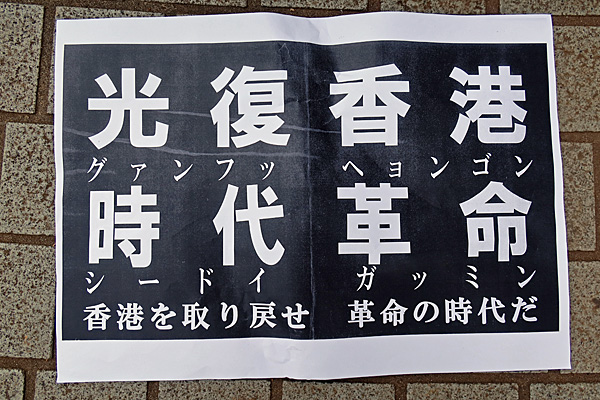 光復香港
グァンフッ ヘョンゴン
時代革命
シードイ ガッミン
香港を取り戻せ 革命の時代だ